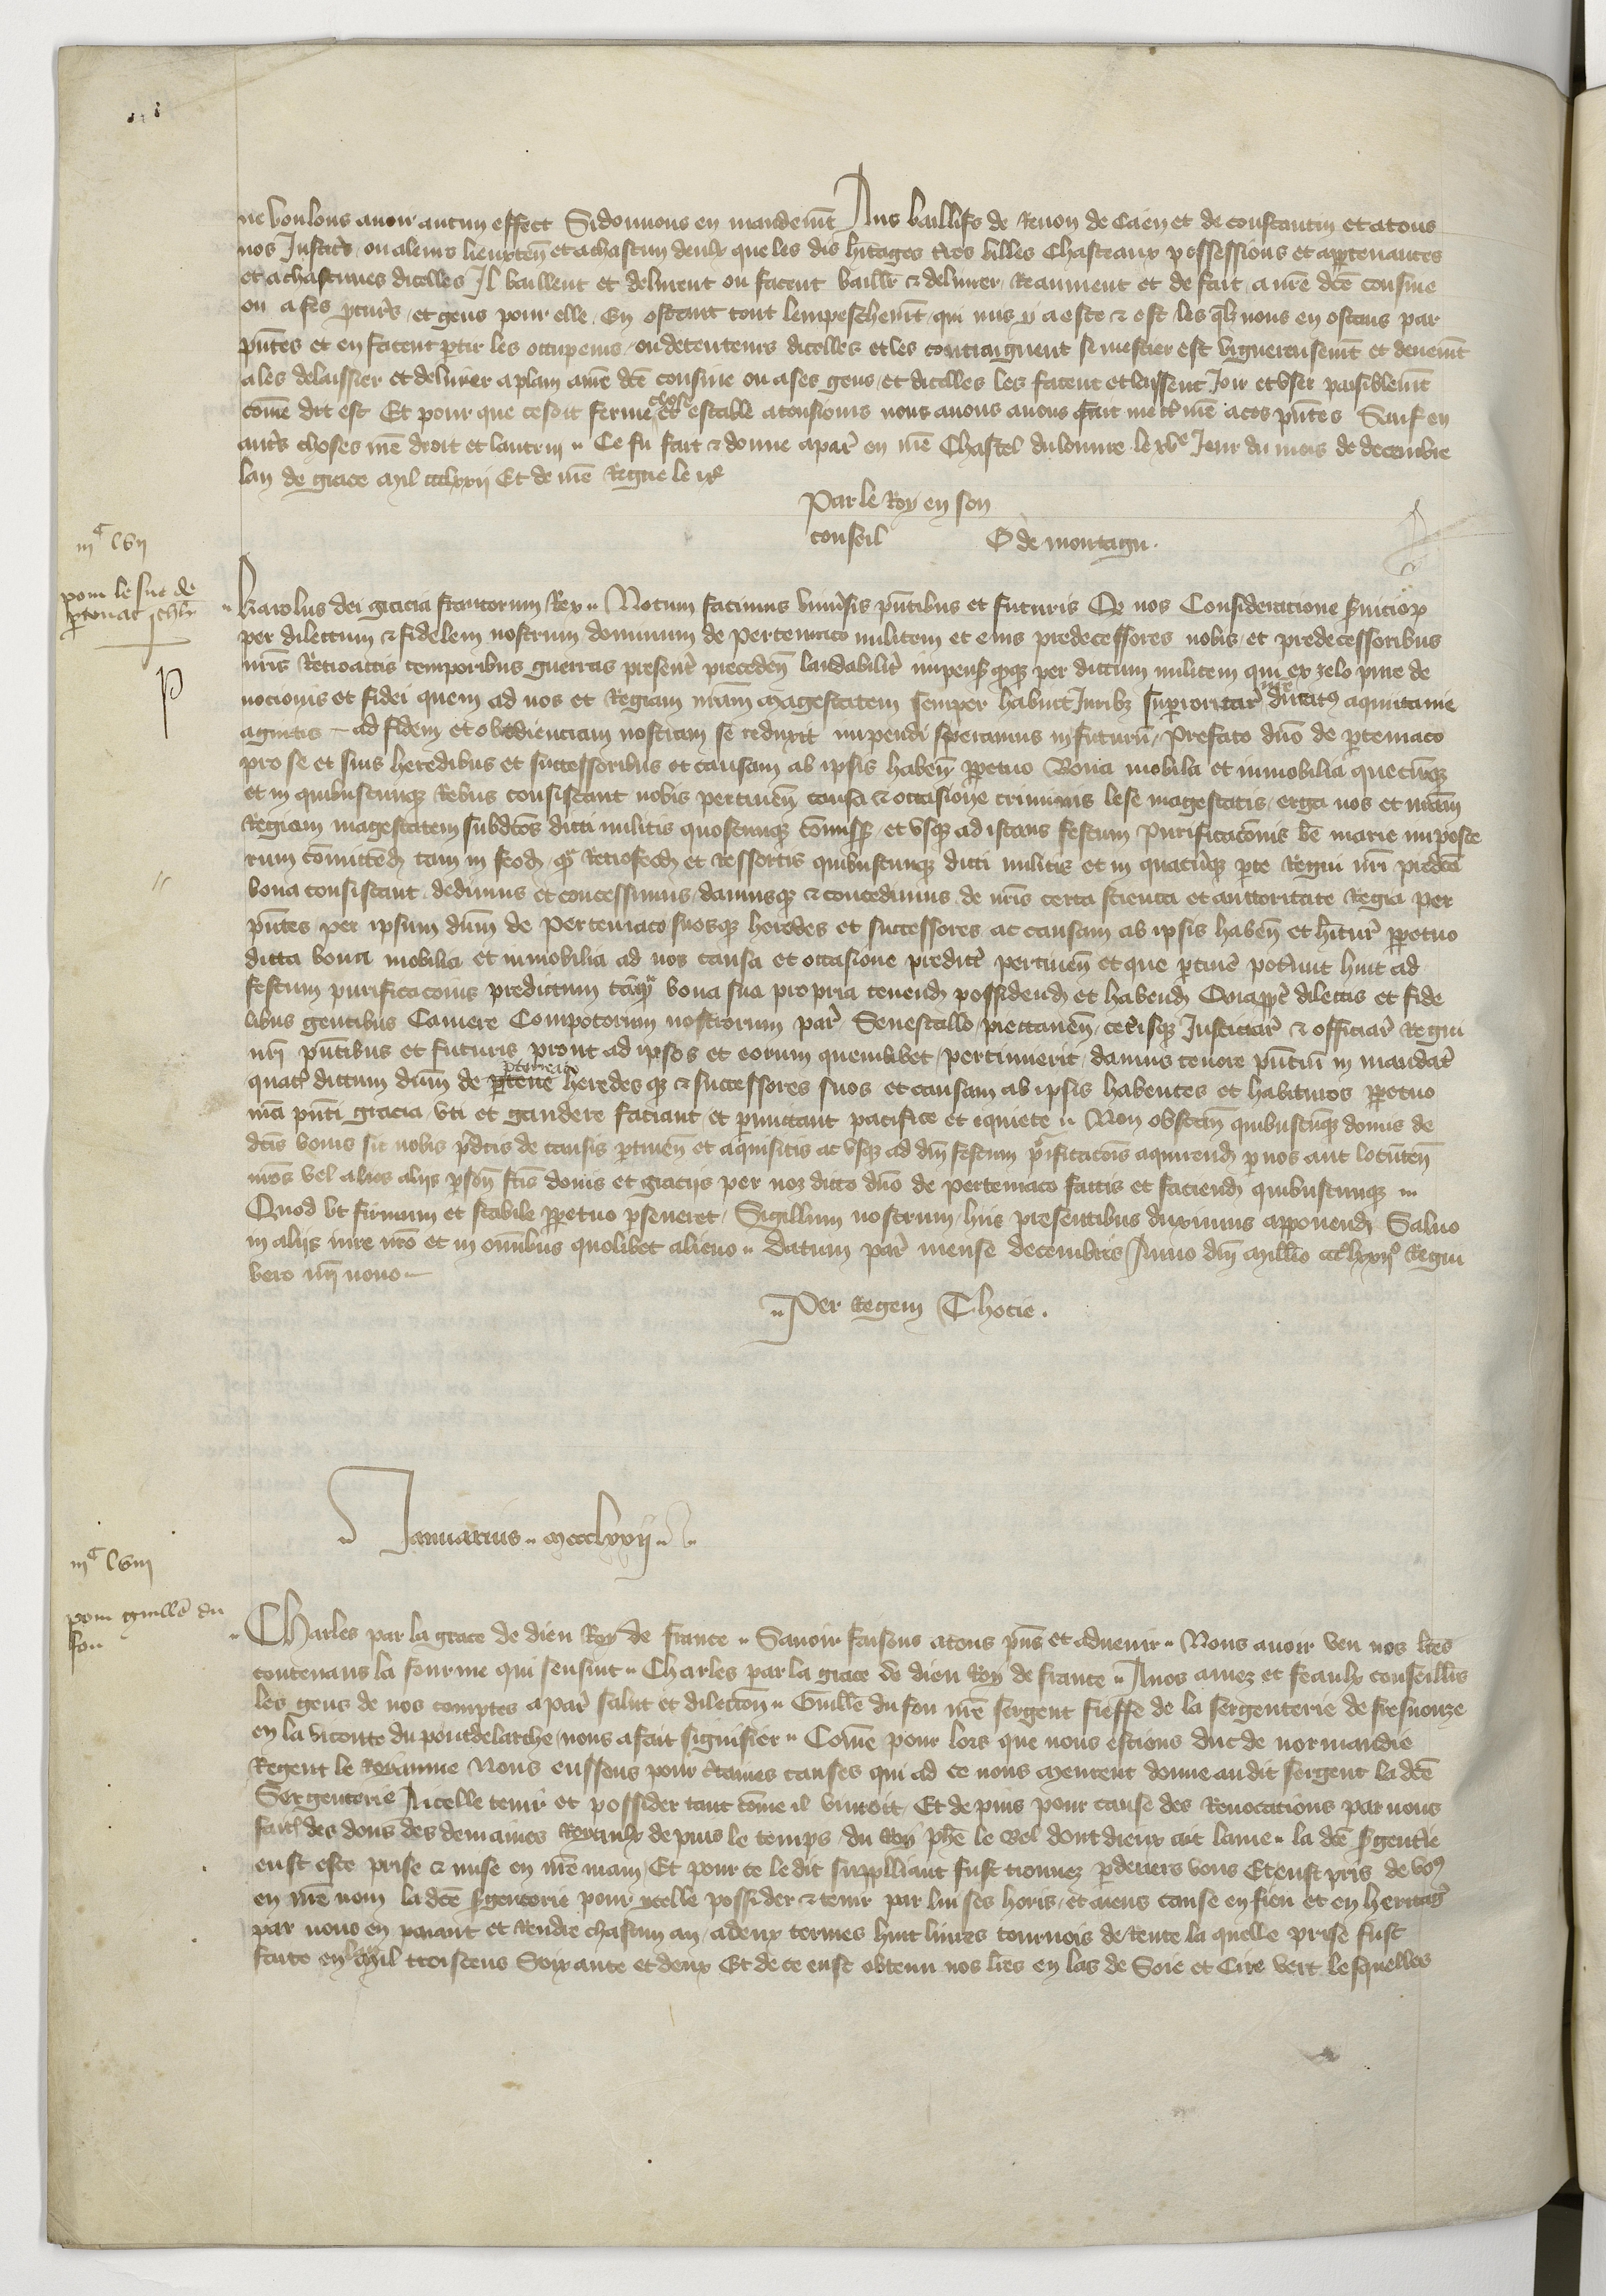 ne voulons avoir aucun effect Si donnons en mandemt Aus baillifs de Rouon de Caen et de constantin et a tous
nos Justic's ou a leurs lieuxten et a chascun deulx que les dis hitages t'res villes Chasteaux possessions et appartenances
et a chascunes dicelles Il baillent et delivrent ou facent baillr & delivrer Reaument et de fait a nre dce cousine
ou a ses pcur's et gens pour elle En ostant tout lempeschemt qui mis y a este & est les qlx nous en ostons par
pntes et en facent ptir les occupeurs ou detenteurs dicelles et les contraignent se mestier est viguereusemt et deuemt
a les delaissier et delivrer a plain a nre dce cousine ou a ses gens et dicelles les facent et laissent Joir et user paisiblemt
come dit est Et pour que ce soit ferme chose et estable a tousiours nous avons avons fait mettr nre a ces pntes Sauf en
autrs choses nre droit et lautruy Ce fu fait & donne a par en nre Chastel du louvre le xve Jour du mois de decembre
lan de grace Mil ccclxxii Et de nre Regne le ixe
Par le Roy en son
conseil G de montagu.
iiic lvii
pour le sire de
ptenay chlr
Karolus dei gracia francorum Rex Notum facimus univ'sis pntibus et futuris Qd nos Consideracione s'vicior
per dilectum & fidelem nostrum dominum de pertenaco militem et eius predecessores nobis et predecessoribus
nris Retroactis temporibus guerras present preceden laudabilit' impens qq per dictum militem qui ex zelo pure de
vocionis et fidei quem ad nos et Regiam nram Magestatem semper habuit Juribz superioritat ducatus aquitanie
agnitis ad fidem et obedienciam nostram se reduxit impendi speramus in futuru Prefato dno de pertenaco
pro se et suis heredibus et successoribus et causam ab ipsis haben ppetuo Bona mobilia et inmobilia quecuq
et in quibuscunq Rebus consistant nobis pertinen causa & occasione criminis lese magestatis erga nos et nram
Regiam magestatem subdtos dicti militis quoscunq comiss et usq ad istans festum Purificacois be marie in poste
rum comittend tam in feod q Retrofeod et Ressortis quibuscunq dicti militis et in quacuq pte Regni nri predcta
bona consistant dedimus et concessimus damusq & concedimus de nris certa sciencia et auctoritate Regia per
pntes per ipsum dum de Pertenaco suosq heredes et successores ac causam ab ipsis haben et hitur ppetuo
dicta bona mobilia et inmobilia ad nos causa et occasione predict pertinen et que ptine pot'unt huc ad
festum purificacois predictum taq bona sua propria tenend possidend et habend Quapp dilectis et fide
libus gentibus Camere Compotorum nostrorum par Senescallo pictaven cet'isq Justiciar & officiar Regni
nri pntibus et futuris prout ad ipsos et eorum quemlibet pertinuerit damus tenore pntiu in mandat
quat' dictum dum de ptene ptenaco heredesq & successores suos et causam ab ipsis habentes et habituros ppetuo
nra pnti gracia uti et gaudere faciant et pmittant pacifice et quiete Non obstan quibuscuq donis de
dtis bonis sic nobis pdcis de causis ptinen et aquisitis ac usq ad dm festum pificacois aquirend p nos aut locuten
nros vel alios aliis pson fcis donis et graciis per nos dicto dno de pertenaco factis et faciend quibuscunq
Quod ut firmum et stabile ppetuo pseveret Sigillum nostrum hiis presentibus duximus apponend Salvo
in aliis iure nro et in omibus quolibet alieno Datum par mense decembris Anno dni Millio cccolxxiio Regni
vero nri nono
Per Regem Thocie.
Januarius Mccclxxii
iiic lviii
pour guille du
fou
Charles par la grace de dieu Roy de france Savoir faisons a tous pns et advenir Nous avoir veu nos lres
contenans la fourme qui sensuit Charles par la grace de dieu Roy de france A nos amez et feaulx conseilles
les gens de nos comptes a par salut et dilection Guille du fou nre sergent fieffe de la sergenterie de fresnouze
en la viconte du pontdelarche nous a fait signifier Come pour lors que nous estions duc de normandie
Regent le Royaume Nous eussons pour c'taines causes qui ad ce nous Meurent donne audit sergent la dce
Sergenterie A icelle tenir et possider tant come il vivroit Et depuis pour cause des Revocacions par nous
faictes des dons des demaines Royaulx depuis le temps du Roy phe le Bel dont dieux ait lame la dce sgent'ie
eust este prise & mise en nre main Et pour ce ledit suppliant fust trouvez pdevers vous Et eust pris de vos
en nre nom la dce sgenterie pour ycelle possider & tenir par lui ses hoirs et aiens cause en fieu et en heritag'
par nous en paiant et Rendre chascun an a deux termes huit livres tournois de Rente la quelle prise fust
faite en lan Mil troiscens Soixante et deux Et de ce eust obtenu nos lres en las de Soie et Cire vert lesquelles